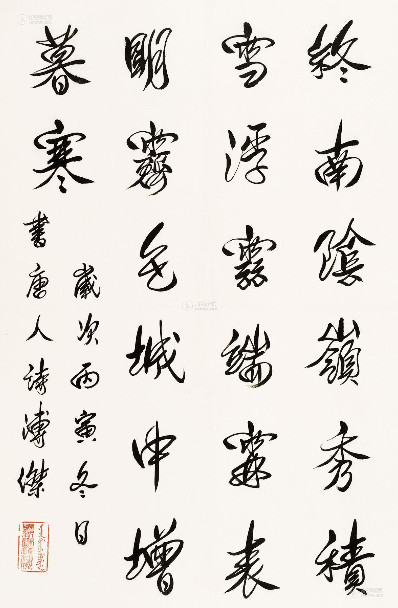 終南陰嶺秀積
雪浮雲端霖表
明霽色城中增
暮寒
歲次丙寅冬日
書唐人詩溥傑